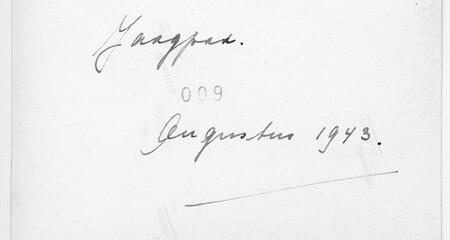 Jaagpad.
009
Augustus 1943.